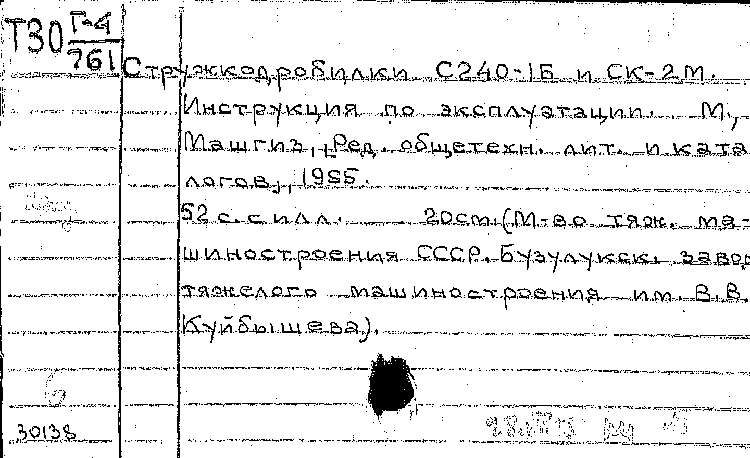 Т30 Г-4
761
Стружкодробилки С240-1Б и СК-2М.
Инструкция по эксплуатации. М.,
Машгиз, [Ред. общетехн. лит. и ката
логов], 1955.
52 с. с илл. 20 см. (М-во тяж. ма-
шиностроения СССР. Бузулукск. завод
тяжелого машиностроения им. В.В.
Куйбышева).
30138